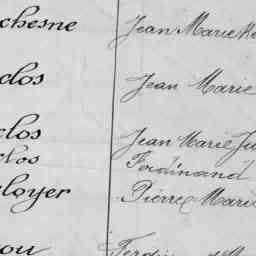 chesne Jean Marie
clos Jean Marie
clos Jean Marie Ju
clos Ferdinand
loyer Pierre Marie
ou Ferdin